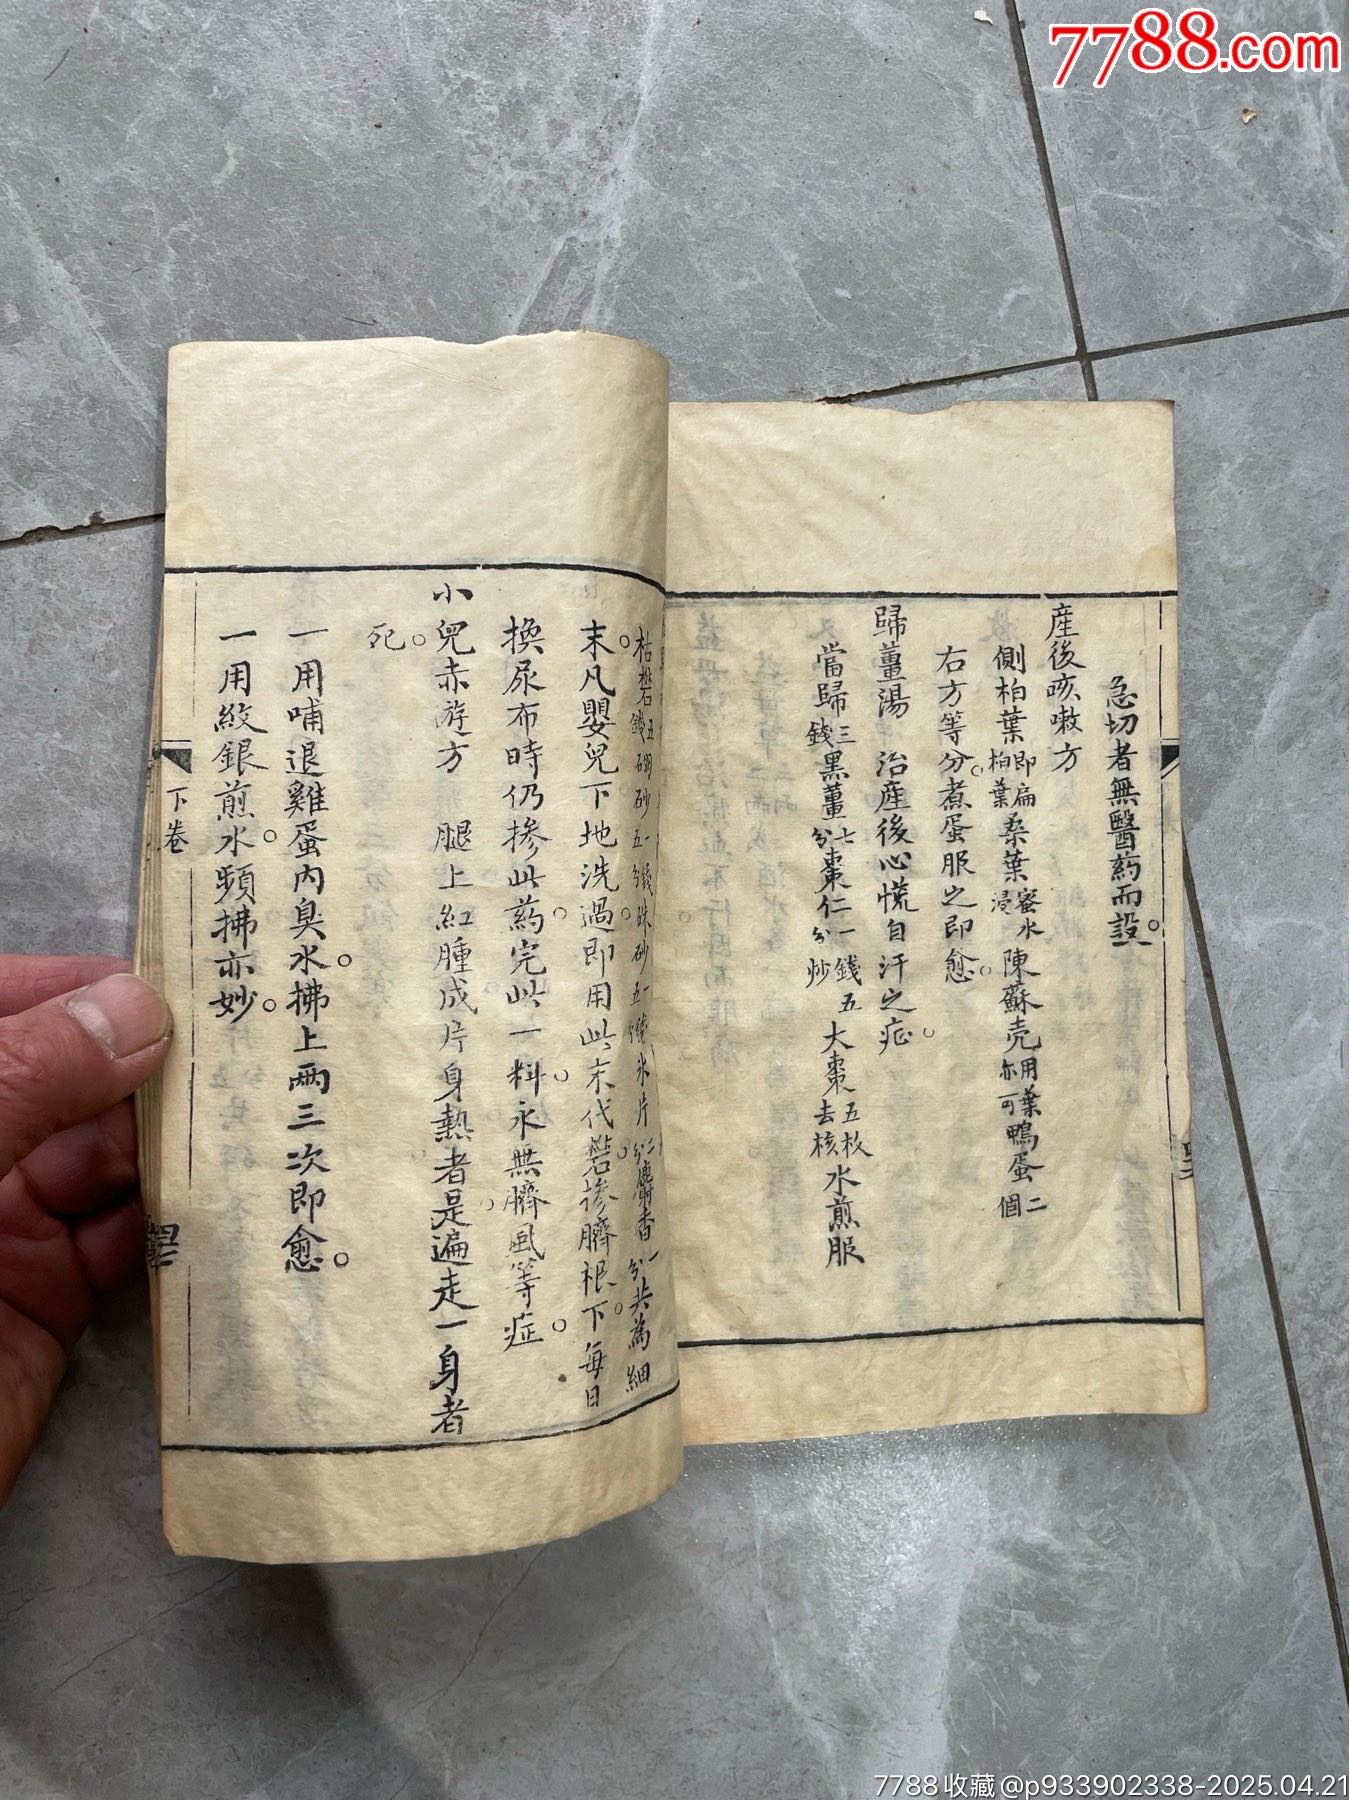 7788.com
急切者無醫药而設。
產後咳嗽方
側柏葉即扁柏葉桑葉蜜水浸陳蘇壳用葉亦可鴨蛋二個
右方等分。煮蛋服之即愈。
歸薑湯 治產後心慌自汗之症。
當歸三錢黑薑七分棗仁一錢五分炒大棗五枚去核水煎服
枯礬五錢硼砂一錢五分硃砂一錢五分氷片二分麝香一分共為細
末。凡嬰兒下地洗過。即用此末代礬。摻臍根下。每日
換尿布時仍摻此药。完此一料。永無臍風等症。
小兒赤遊方 腿上紅腫成片身熱者是。遍走一身者
死。
一用哺退雞蛋內臭水。拂上两三次即愈。
一用紋銀煎水。頻拂亦妙。
下卷
7788收藏@p933902338-2025.04.21